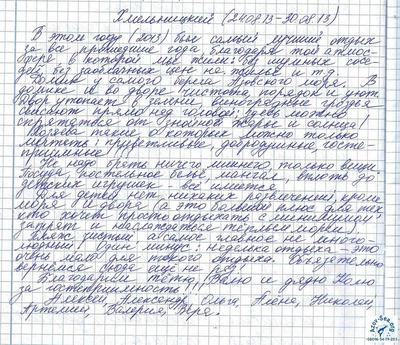 Хмельницкий (24.08.13-30.08.13)
В этом году (2013) был самый лучший отдых
за все прошедшие года, благодаря той атмос-
фере, в которой мы жили: без шумных сосе-
дей, без заоблачных цен на жильё и т.д.
Домик у самого берега Азовского моря. В
домике и во дворе чистота, порядок и уют.
Двор утопает в зелени, виноградные гроздья
свисают прямо над головой; здесь можно
спрятаться от знойной жары и солнца!
Хозяева такие о которых можно только
мечтать: приветливые, добродушные, госте-
приимные.
Не надо брать ничего лишнего, только вещи.
Посуда, постельное бельё, мангал, вплоть до
детских игрушек - всё имеется.
Для детей нет никаких развлечений, кроме
моря и двора (а это большой плюс для тех
кто хочет просто отдыхать с минимальн
затрат и наслаждаться тёплым морем).
Пляж чистый а самое главное не много-
людный! Один минус: неделька отдыха - это
очень мало для такого отдыха. Обязательно
вернёмся сюда ещё не раз!
Благодарим тётю Валю и дядю Колю
за гостеприимность!!!
Алексей, Александр, Ольга, Алёна, Николай,
Артемий, Валерия, Вера.
Azov-Sea